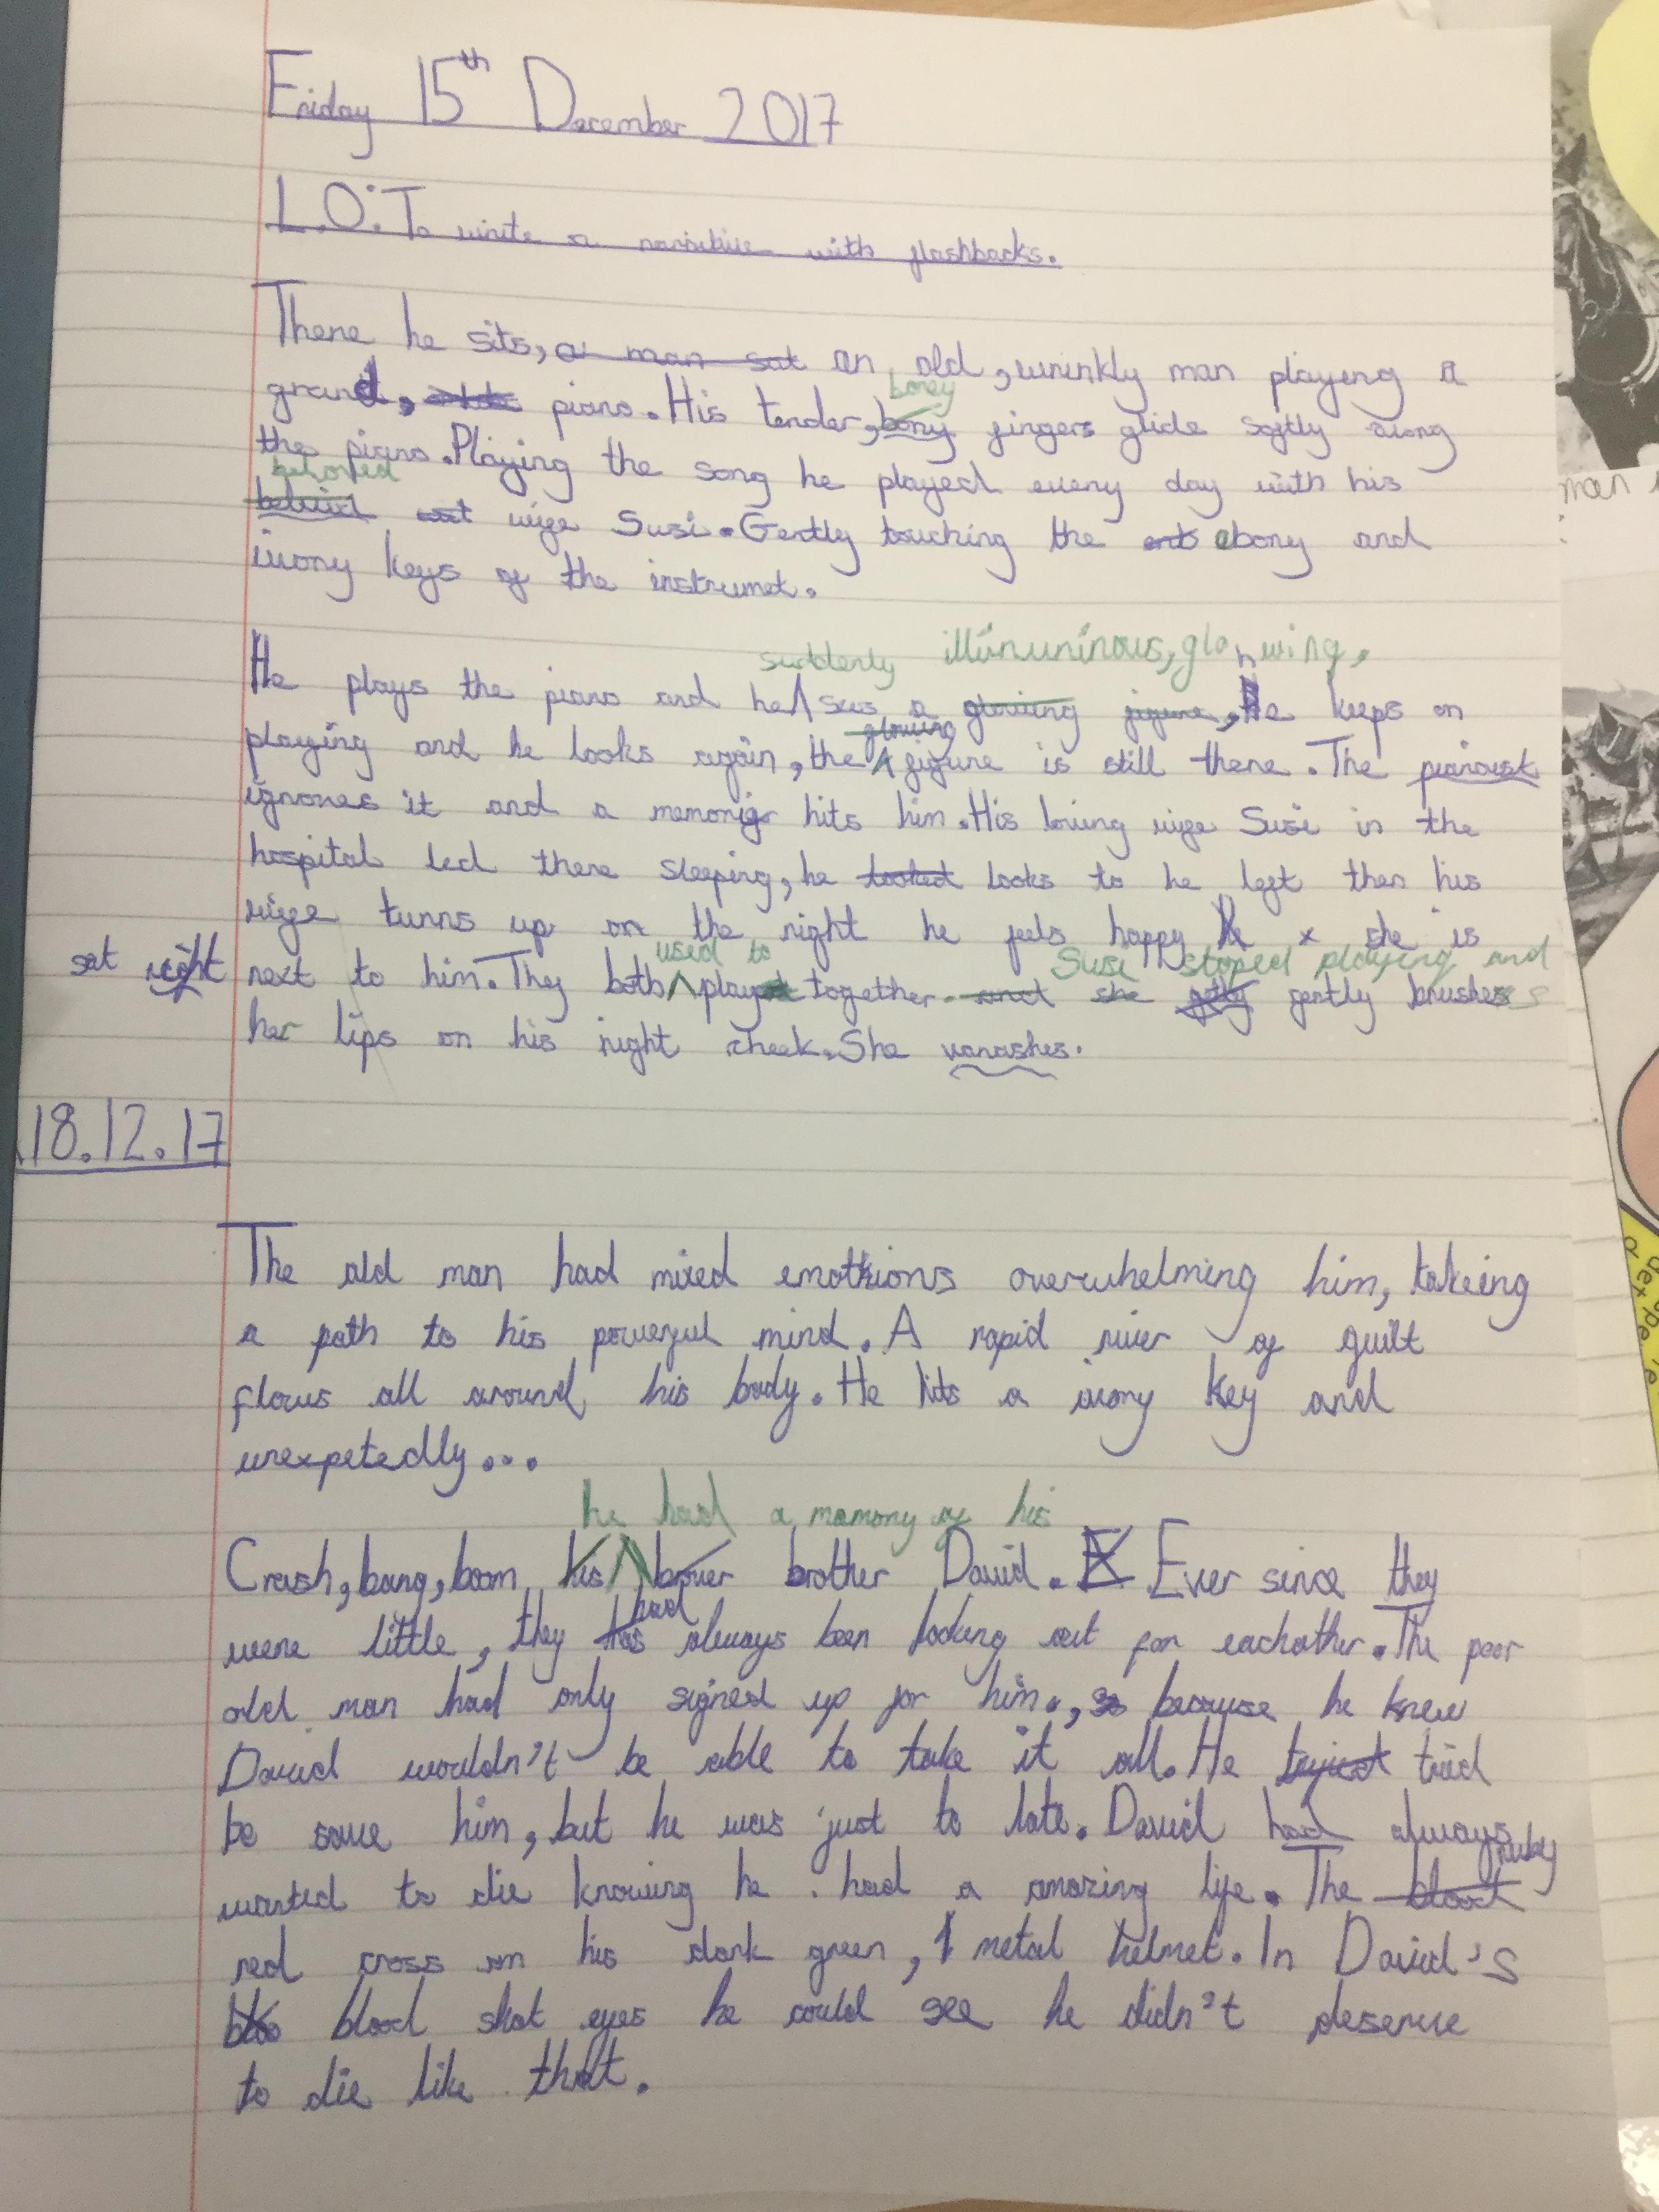 Friday 15th December 2017
L.O: To write a narrative with flashbacks.
There he sits, a man sat an old, wrinkly man playeng a
boney
grand, piano. His tender, bony fingers glide softly along
the piano. Playing the song he played every day with his
beloved
wife Susi. Gently touching the ebony and
ivory keys of the instrumet.
suddenly illinuminous, glowing,
He plays the piano and he sees a glowing figure, he keeps on
glowing
playing and he looks again, the figure is still there. The pianoist
ignores it and a memory hits him. His loving wife Susi in the
hospital led there sleeping, he looked looks to he left then his
wife turns up on the right he feels happy x she is
used to Susi stoped playing and
sat right next to him. They both played together and she gently brushes
her lips on his right cheek. She vanashes.
18.12.17
The old man had mixed emotions overwhelming him, takeing
a path to his powerful mind. A rapid river of guilt
flows all around his body. He hits a ivory key and
unexpetedly...
he had a memory of his
Crash, bang, boom his brover brother David. E Ever since they
had
were little, they has always been looking out for eachother. The poor
old man had only signed up for him., so because he knew
David wouldn't be able to take it all. He tryied tried
to save him, but he was just to late. David had always
ruby
wanted to die knowing he had a amazing life. The blood
red cross on his dark green, metal helmet. In David's
bloo blood shot eyes he could see he didn't deserve
to die like that.
man